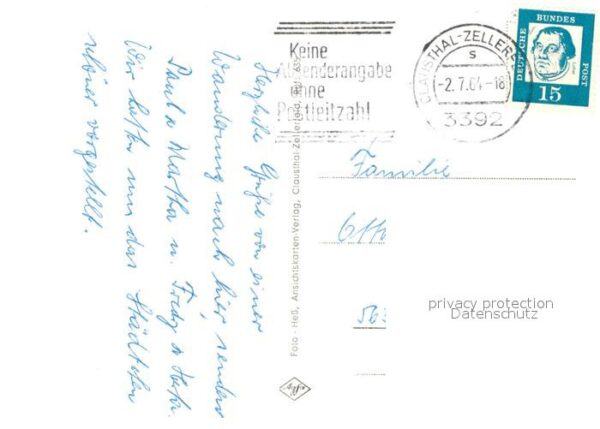 Keine
Absenderangabe
ohne
Postleitzahl
CLAUSTHAL-ZELLERF
s
-2.7.64-18
3392
DEUTSCHE BUNDES POST
15
Herzliche Grüße von einer
Wanderung nach hier, senden
Paul u. Martha u. Fredy
Wir hatten uns das Städtchen
schöner vorgestellt.
Foto - Heß, Ansichtskarten-Verlag, Clausthal-Zellerfeld
Familie
Otto
563
privacy protection
Datenschutz